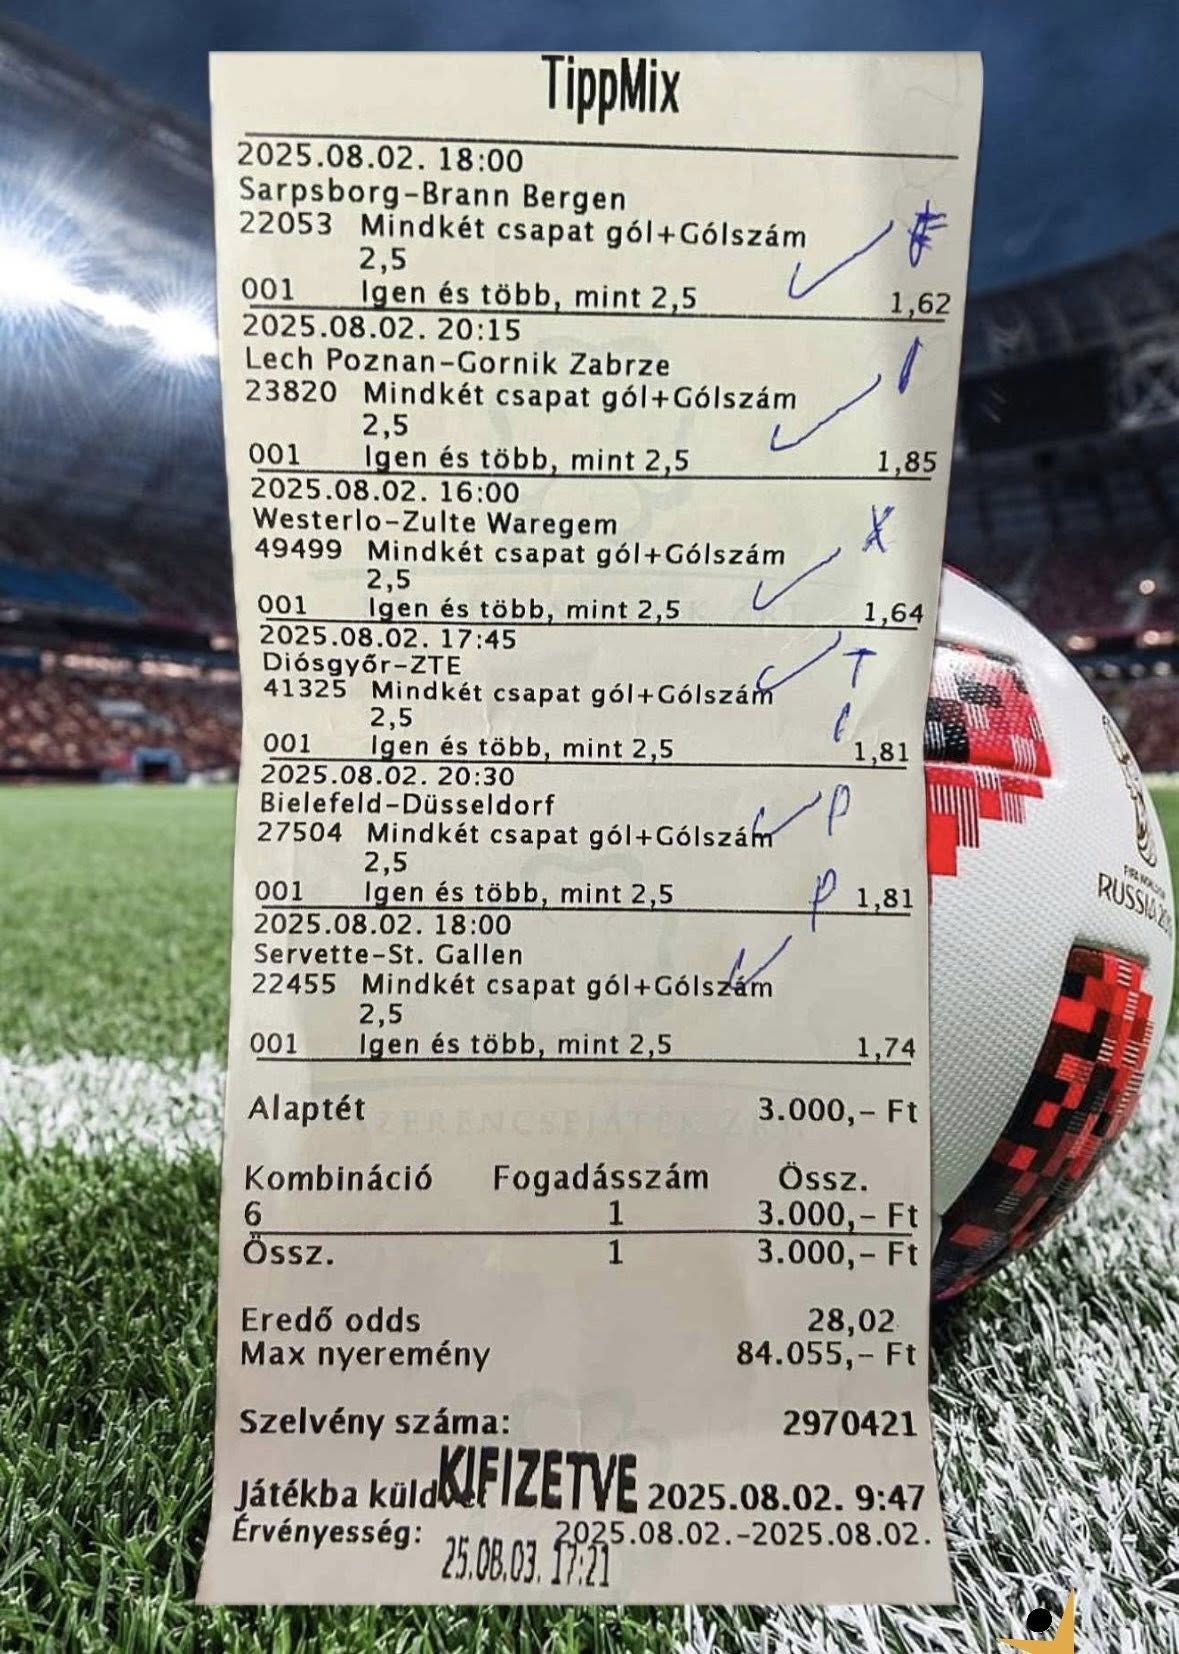 TippMix
2025.08.02. 18:00
Sarpsborg-Brann Bergen
22053 Mindkét csapat gól+Gólszám
2,5
001 Igen és több, mint 2,5 1,62
2025.08.02. 20:15
Lech Poznan-Gornik Zabrze
23820 Mindkét csapat gól+Gólszám
2,5
001 Igen és több, mint 2,5 1,85
2025.08.02. 16:00
Westerlo-Zulte Waregem
49499 Mindkét csapat gól+Gólszám
2,5
001 Igen és több, mint 2,5 1,64
2025.08.02. 17:45
Diósgyőr-ZTE
41325 Mindkét csapat gól+Gólszám
2,5
001 Igen és több, mint 2,5 1,81
2025.08.02. 20:30
Bielefeld-Düsseldorf
27504 Mindkét csapat gól+Gólszám
2,5
001 Igen és több, mint 2,5 1,81
2025.08.02. 18:00
Servette-St. Gallen
22455 Mindkét csapat gól+Gólszám
2,5
001 Igen és több, mint 2,5 1,74
Alaptét 3.000,- Ft
SZERENCSEJÁTÉK ZRT.
Kombináció Fogadásszám Össz.
6 1 3.000,- Ft
Össz. 1 3.000,- Ft
Eredő odds 28,02
Max nyeremény 84.055,- Ft
Szelvény száma: 2970421
KIFIZETVE
Játékba küldve: 2025.08.02. 9:47
Érvényesség: 2025.08.02.-2025.08.02.
25.08.03. 17:21
RUSSIA 20